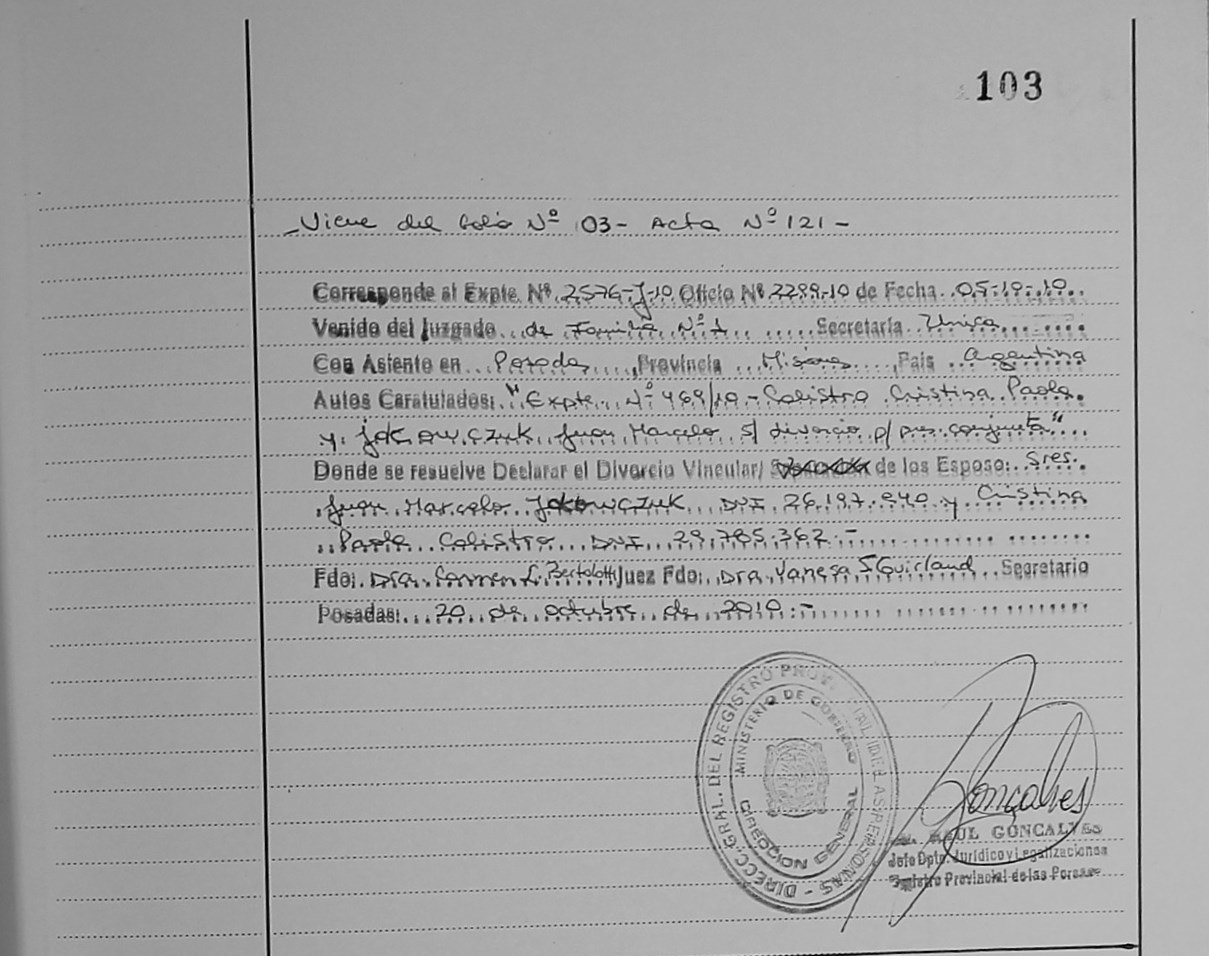 103
-Viene del folio Nº 03- Acta Nº 121-
Corresponde al Expte. Nº 2576-J-10 Oficio Nº 2299-10 de Fecha 05-10-10.
Venido del Juzgado de Familia Nº 1 Secretaría Unica
Con Asiento en Posadas, Provincia Misiones, País Argentina
Autos Caratulados: "Expte. Nº 469/10 - Calistro Cristina Paola
y Jakowczuk Juan Marcelo s/ divorcio p/ pres. conjunta"
Donde se resuelve Declarar el Divorcio Vincular/ de los Esposo: Sres.
Juan Marcelo Jakowczuk DNI 26.197.940 y Cristina
Paola Calistro DNI 29.785.362.-
Fdo: Dra. Carmen L. Bertolotti Juez Fdo: Dra. Vanesa Secretario
Posadas: 20 de octubre de 2010.-
DIRECC. GRAL. DEL REGISTRO DE LAS PERSONAS
MINISTERIO DE GOBIERNO
DIRECCION GENERAL
Gonçalves
RAUL GONCALVES
Jefe Dpto. Jurídico y Legalizaciones
Registro Provincial de las Personas